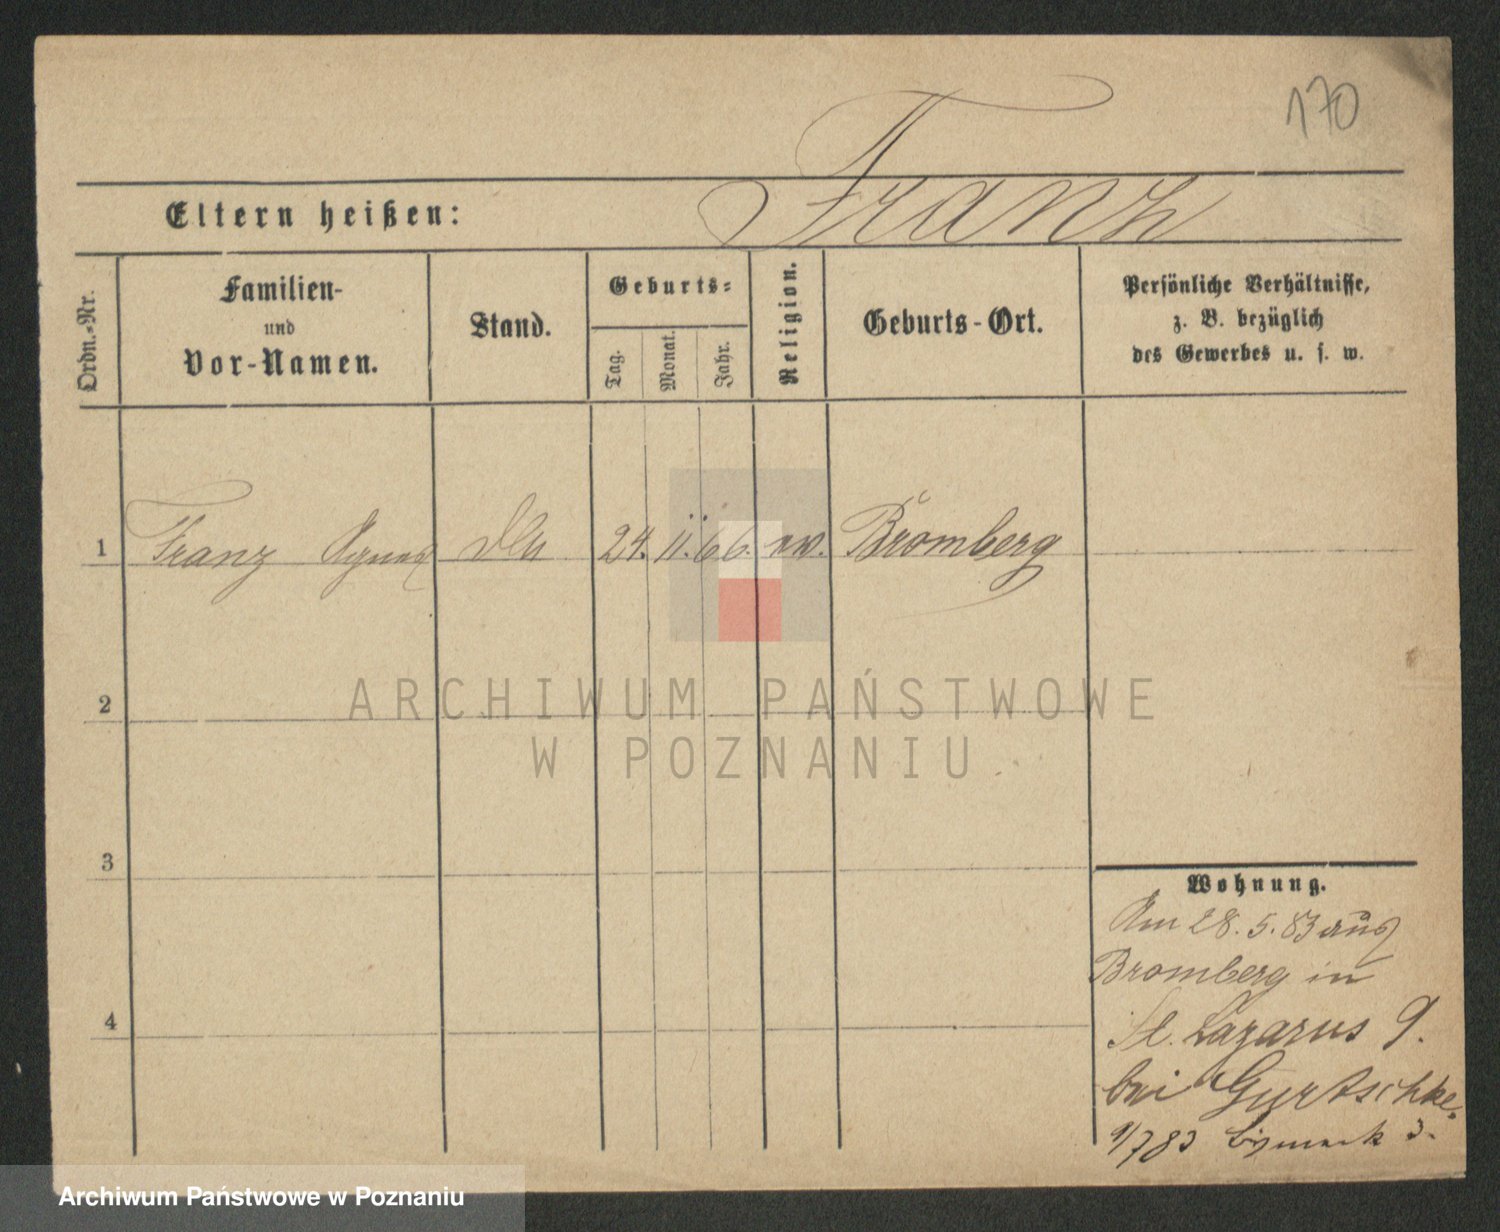 170
Franz
Eltern heißen:
Ordn.-Nr.
Familien-
und
Vor-Namen.
Stand.
Geburts-
Tag.
Monat.
Jahr.
Religion.
Geburts-Ort.
Persönliche Verhältnisse,
z. B. bezüglich
des Gewerbes u. s. w.
1 Franz Agnes 24. 11. 66. ev. Bromberg
2
ARCHIWUM PAŃSTWOWE
W POZNANIU
3
Wohnung.
Am 28. 5. 83 aus
Bromberg in
St. Lazarus 9.
bei Gurtschke.
1/7 83 Bismark 3.
4
Archiwum Państwowe w Poznaniu